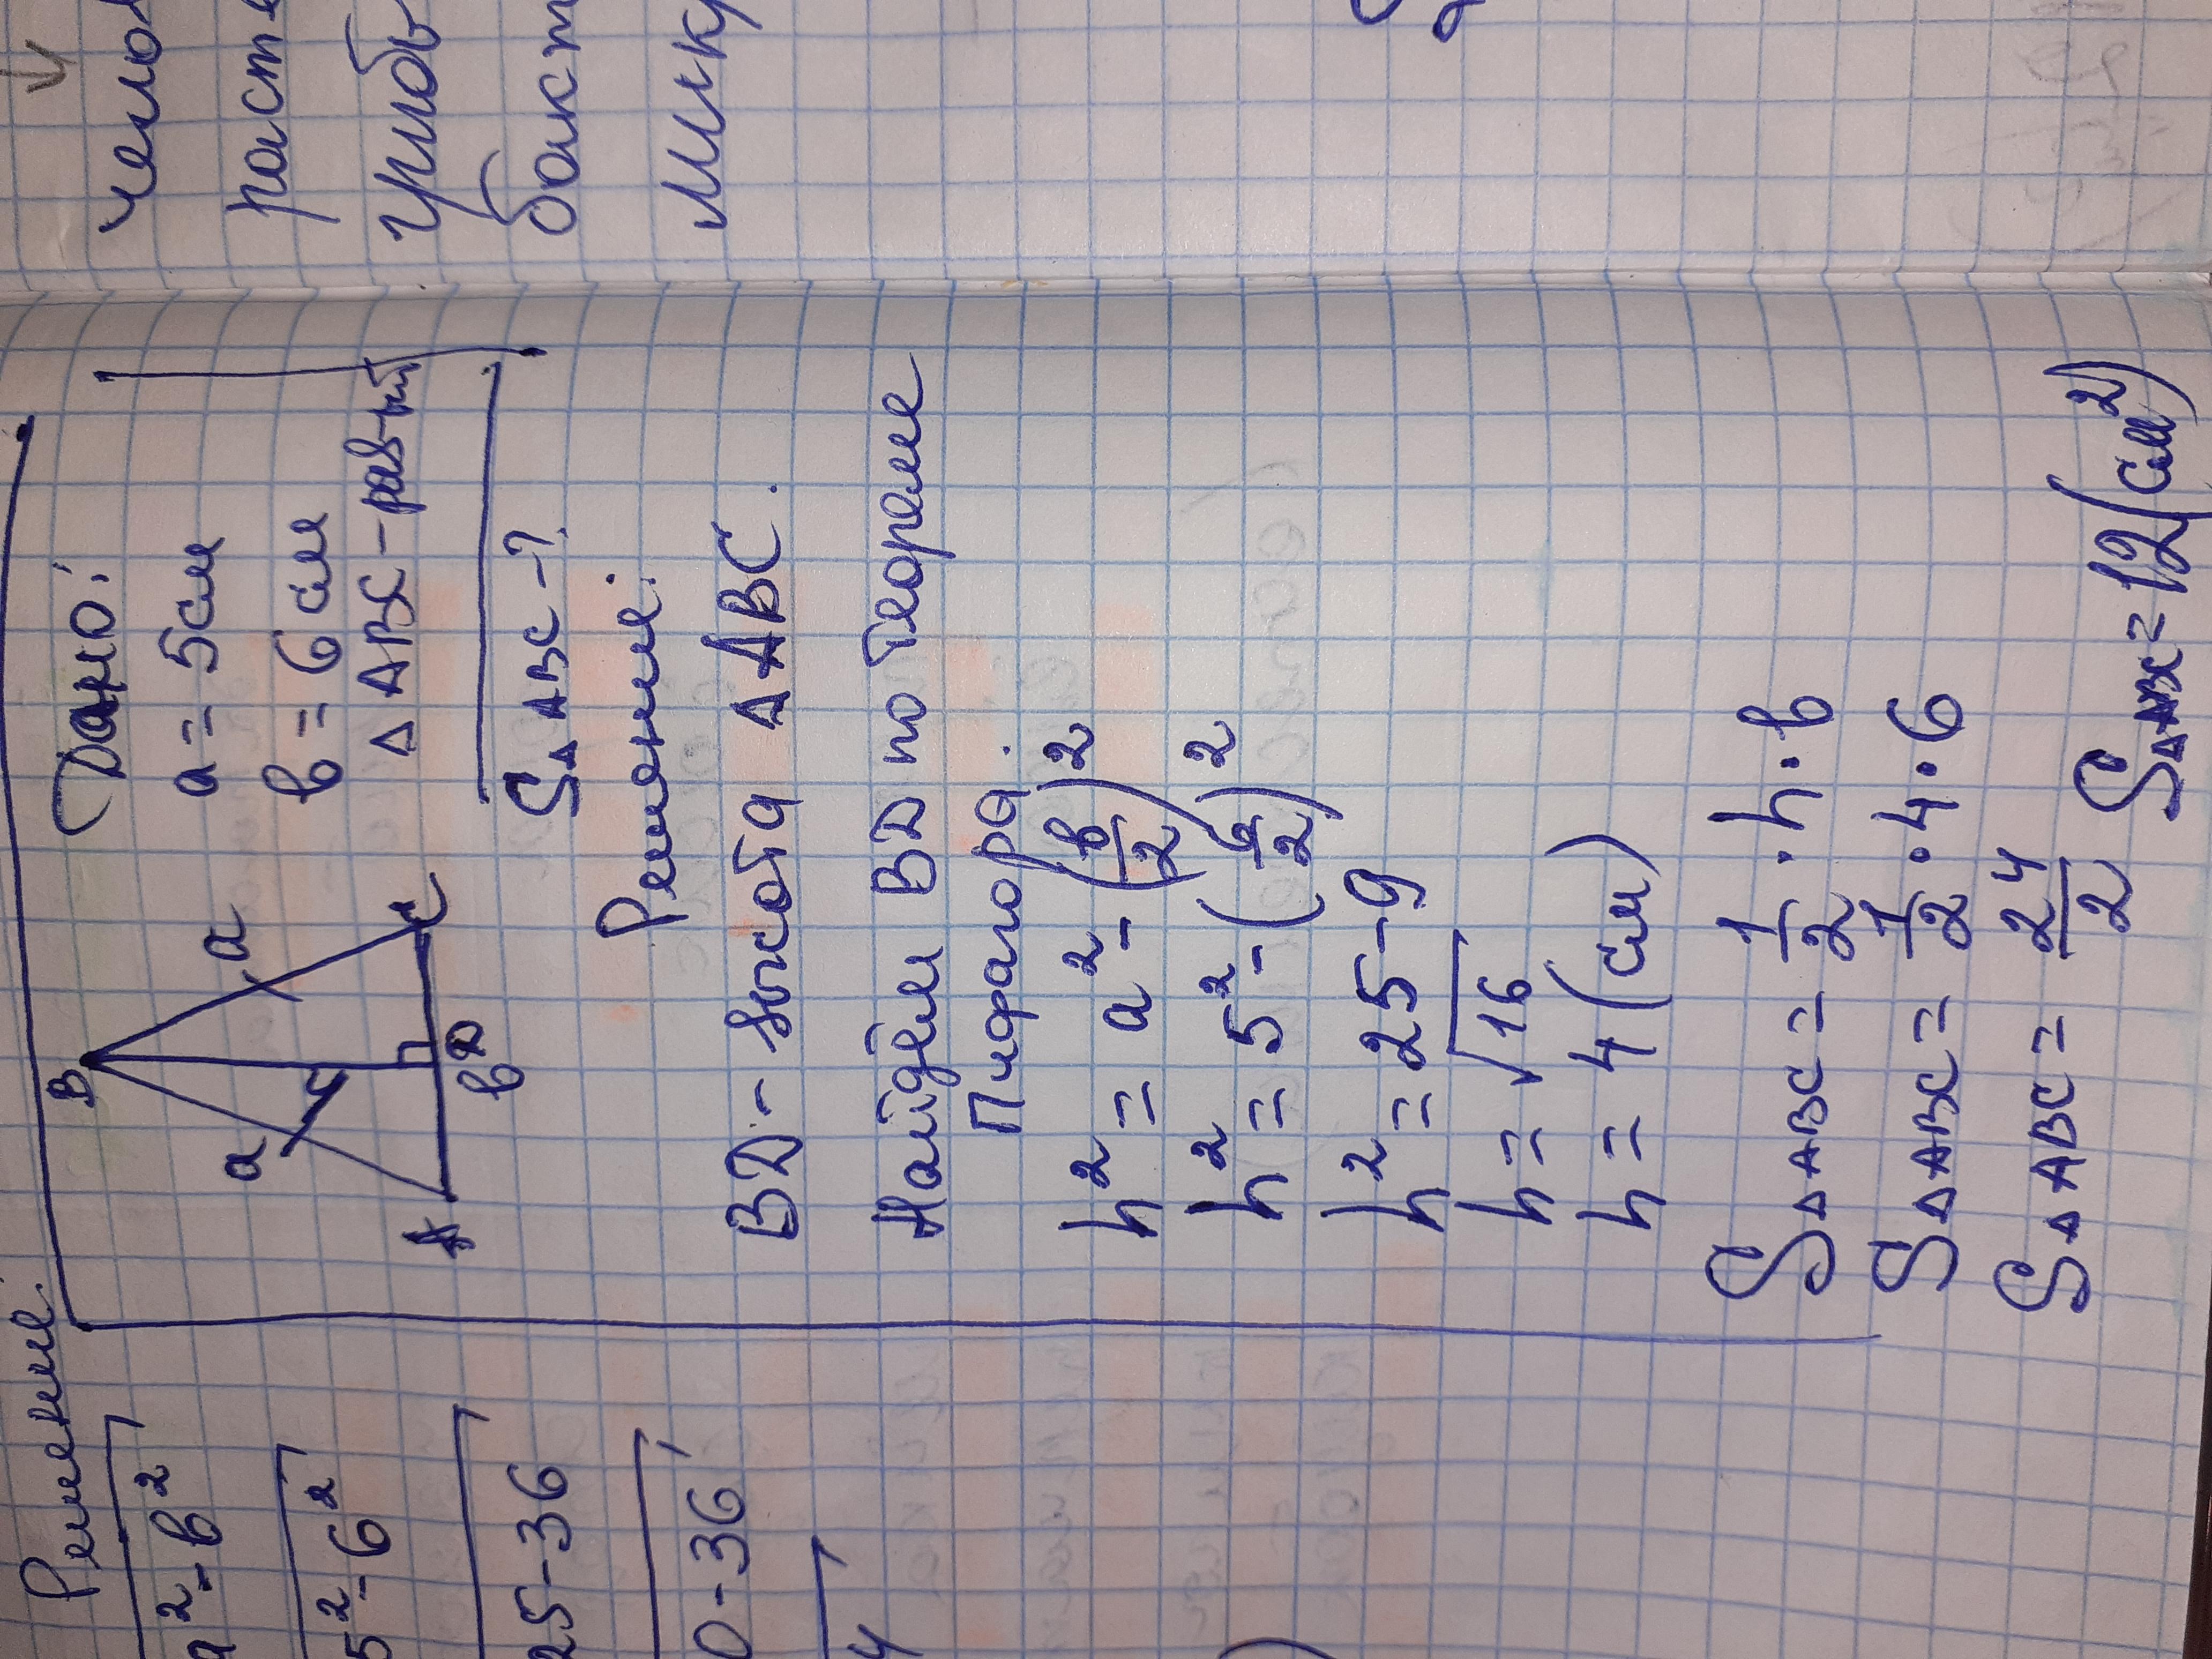 Решение.
a² - b²
5² - 6²
25 - 36
0 - 36
4
B
a
a
A
C
D
b
Дано:
a = 5см
b = 6 см
Δ ABC - рав-ий
S Δ ABC - ?
Решение:
BD - высота Δ ABC.
Найдём BD по теореме
Пифагора.
h² = a² - (b/2)²
h² = 5² - (6/2)²
h² = 25 - 9
h = √16
h = 4 (см)
S Δ ABC = 1/2 · h · b
S Δ ABC = 1/2 · 4 · 6
S Δ ABC = 24/2
S Δ ABC = 12 (см²)